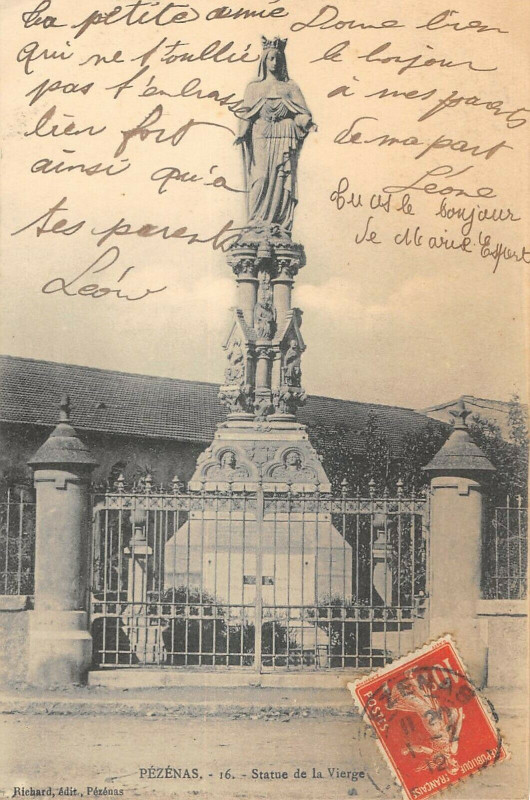 La petite amie
qui ne t'oullie
pas t'embrasse
bien fort
ainsi qu'a
tes parents
Léon
Done bien
le bonjour
à mes parents
de ma part
Léone
tu as le bonjour
de Marie Espert
PÉZÉNAS. - 16. - Statue de la Vierge
Richard, édit., Pézénas
10
POSTES
RÉPUBLIQUE FRANÇAISE
PEZENAS
12